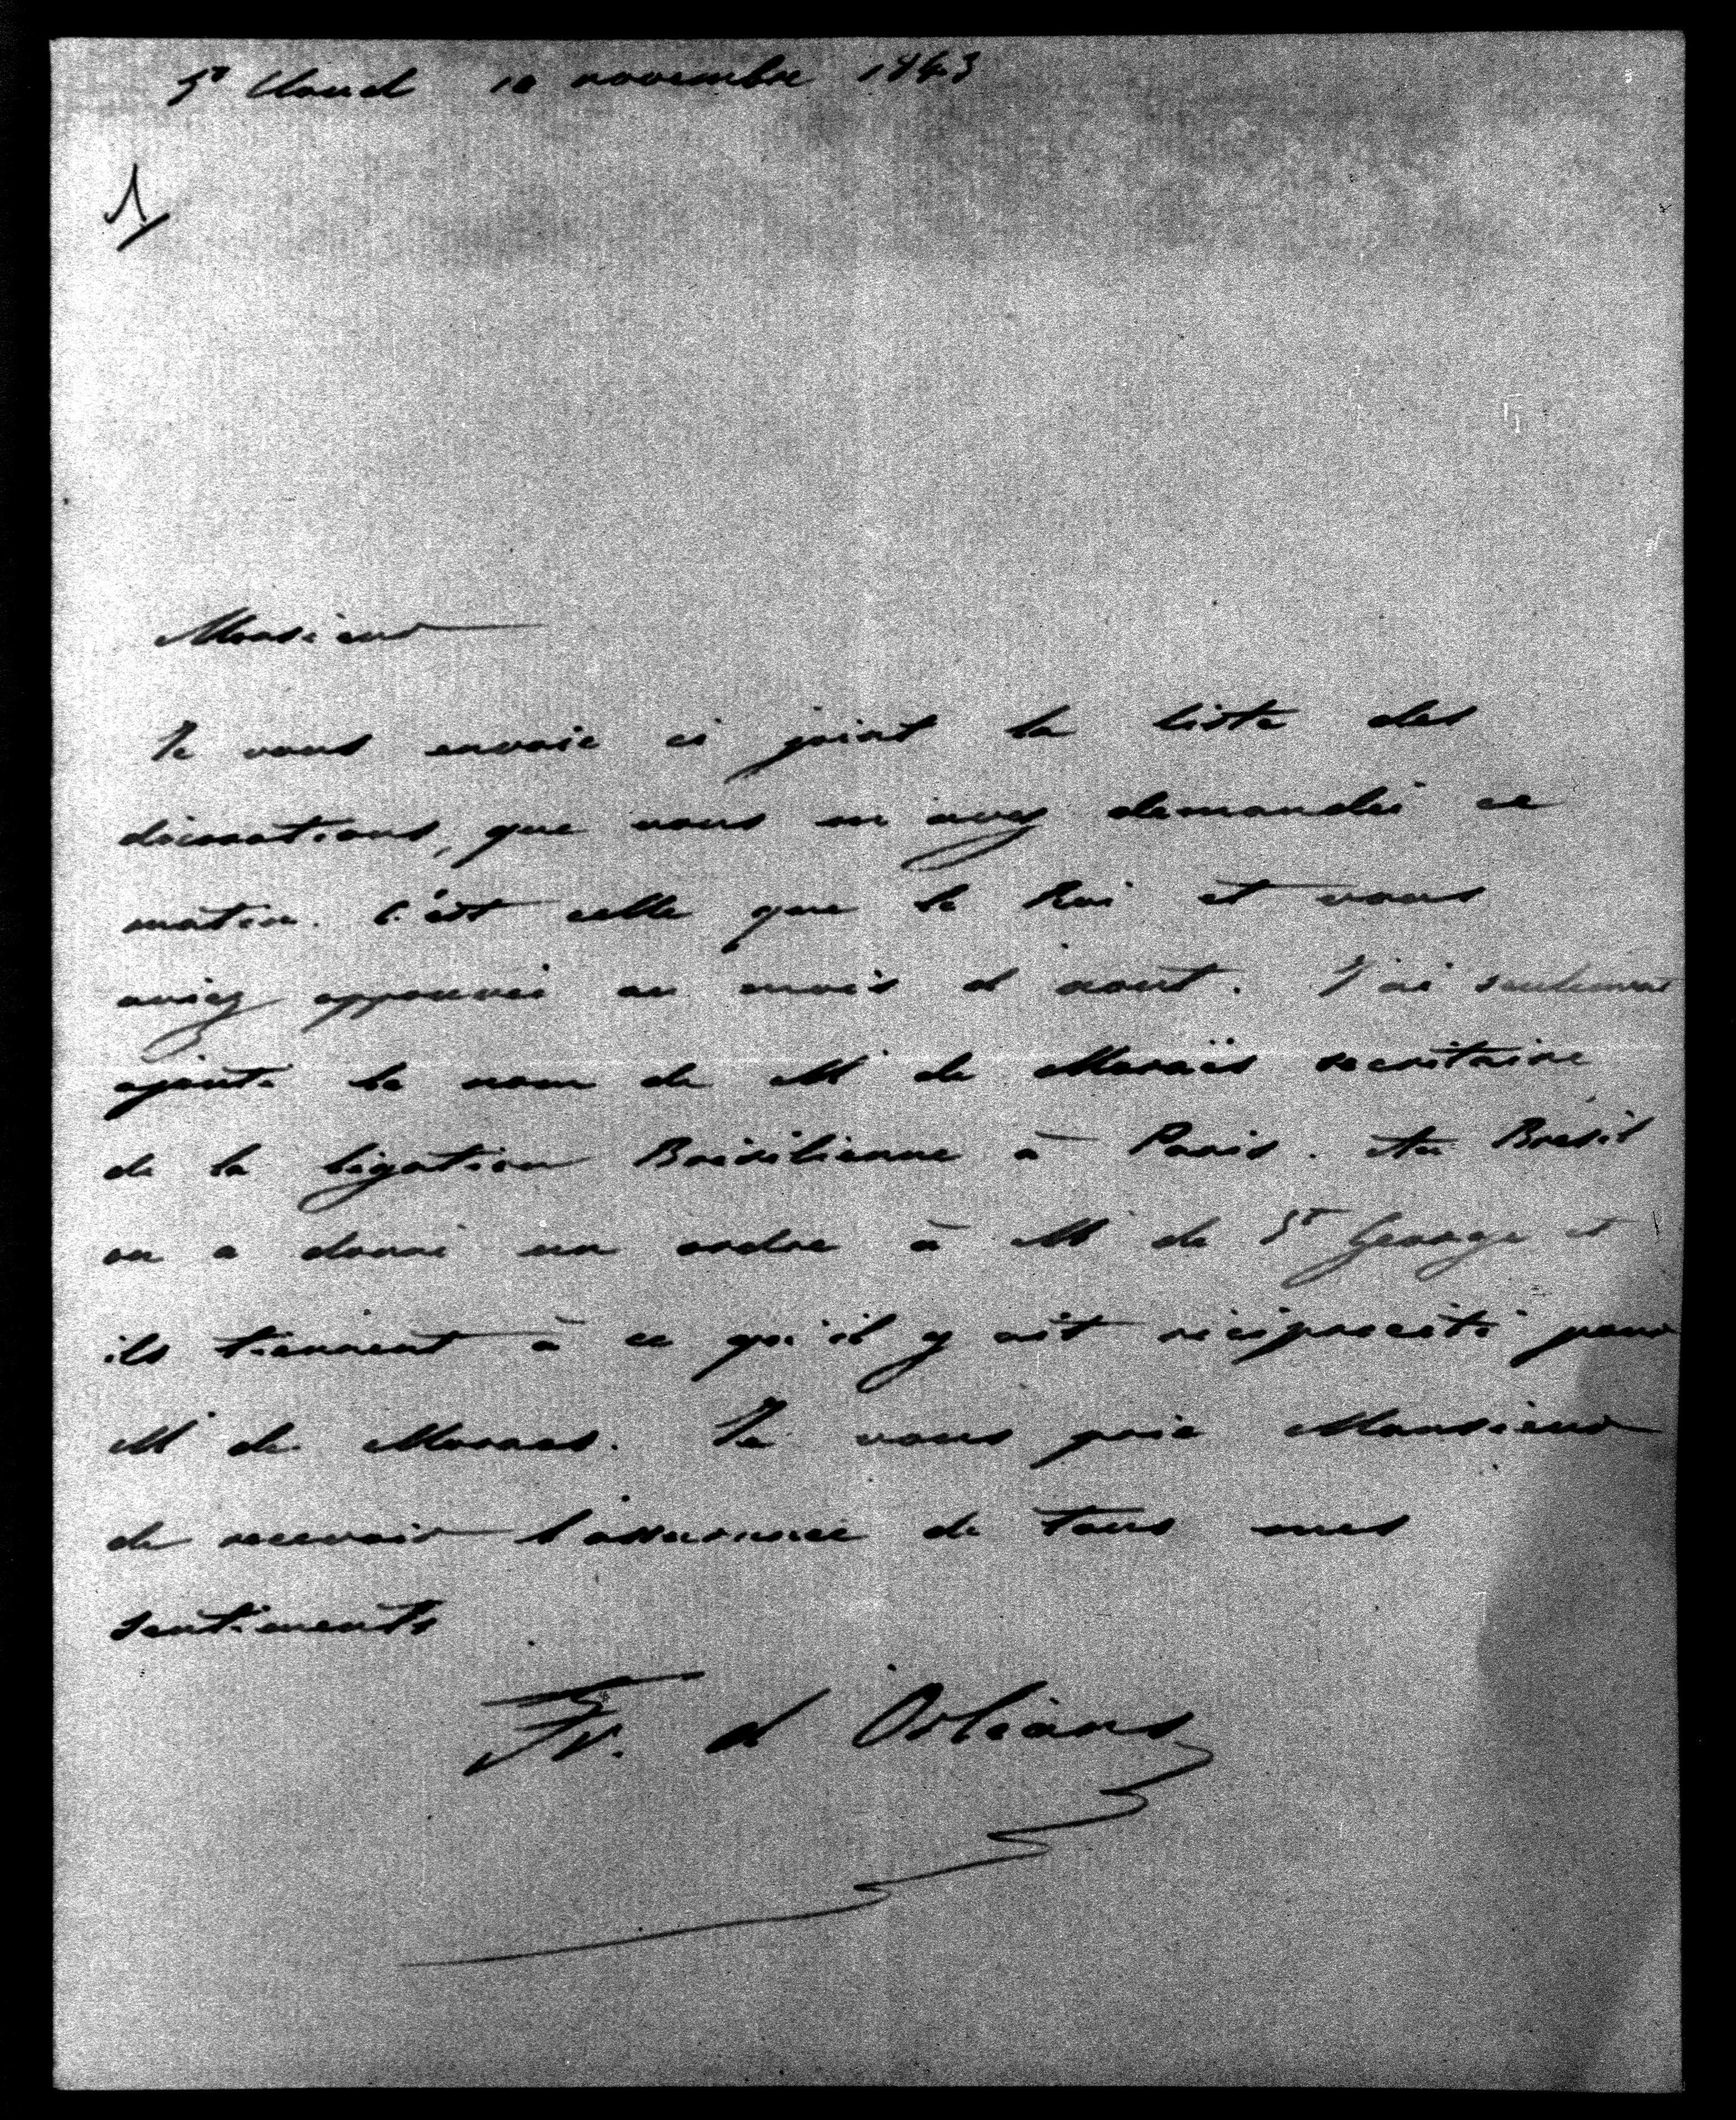 St Cloud 10 novembre 1843
1
Monsieur
Je vous envoie ci joint la liste des
décorations, que vous m'avez demandée ce
matin. C'est celle que le Roi et vous
aviez approuvée au mois d'aout. J'ai seulement
ajouté le nom de Mr de Moraës secrétaire
de la légation Brésilienne à Paris. Au Brésil
on a donné un ordre à Mr de St George et
ils tiennent à ce qu'il y ait réciprocité pour
Mr de Moraes. Je vous prie Monsieur
de recevoir l'assurance de tous mes
sentiments
Fr. d'Orléans